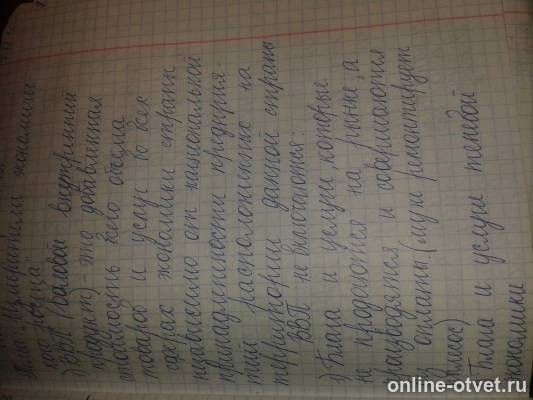 Тема: Измерители экономики
1) ВВП (валовой внутренний
продукт) - это добавленная
стоимость всего объема
товаров и услуг во всех
сферах экономики страны
независимо от национальной
принадлежности предприя-
тий расположенных на
территории данной страны
ВВП не включаются:
1) Блага и услуги которые
не продаются на рынке, а
производятся и совершаются
оплаты (муж ремонтирует
Блага и услуги теневой
экономики
online-otvet.ru